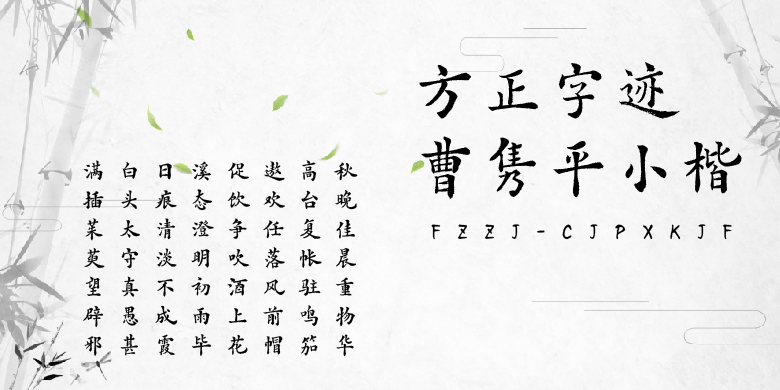 方正字迹
曹隽平小楷
FZZJ-CJPXKJF
秋晚佳晨重物华
高台复帐驻鸣笳
遨欢任落风前帽
促饮争吹酒上花
溪态澄明初雨毕
日痕清淡不成霞
白头太守真愚甚
满插茱萸望辟邪